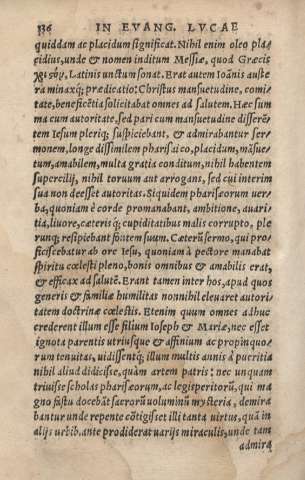 336 IN EVANG. LVCAE
quiddam ac placidum significat. Nihil enim oleo pla-
cidius, unde & nomen inditum Messiæ, quod Græcis
χριστόν, Latinis unctum sonat. Erat autem Ioānis auste
ra minaxq́; prædicatio: Christus mansuetudine, comi-
tate, beneficētia solicitabat omnes ad salutem. Hæc sum
ma cum autoritate, sed pari cum mansuetudine differē
tem Iesum pleriq; suspiciebant, & admirabantur ser-
monem, longe dissimilem pharisaico, placidum, māsue-
tum, amabilem, multa gratia conditum, nihil habentem
supercilij, nihil toruum aut arrogans, sed cui interim
sua non deesset autoritas. Siquidem pharisæorum uer-
ba, quoniam è corde promanabant, ambitione, auari-
tia, liuore, cæterisq́; cupiditatibus malis corrupto, ple
runq; resipiebant fontem suum. Cæterū sermo, qui pro-
ficiscebatur ab ore Iesu, quoniā à pectore manabat
spiritu cœlesti pleno, bonis omnibus & amabilis erat,
& efficax ad salutē. Erant tamen inter hos, apud quos
generis & familiæ humilitas nonnihil eleuaret autori-
tatem doctrinæ cœlestis. Etenim quum omnes adhuc
crederent illum esse filium Ioseph & Mariæ, nec esset
ignota parentis utriusque & affinium ac propinquo-
rum tenuitas, uidissentq́; illum multis annis à pueritia
nihil aliud didicisse, quàm artem patris: nec unquam
triuisse scholas pharisæorum, ac legisperitorū, qui ma
gno fastu docebāt sacrorū uoluminū mysteria, demira
bantur unde repente cōtigisset illi tanta uirtus, quā in
alijs urbib. ante prodiderat uarijs miraculis, unde tam
admirā